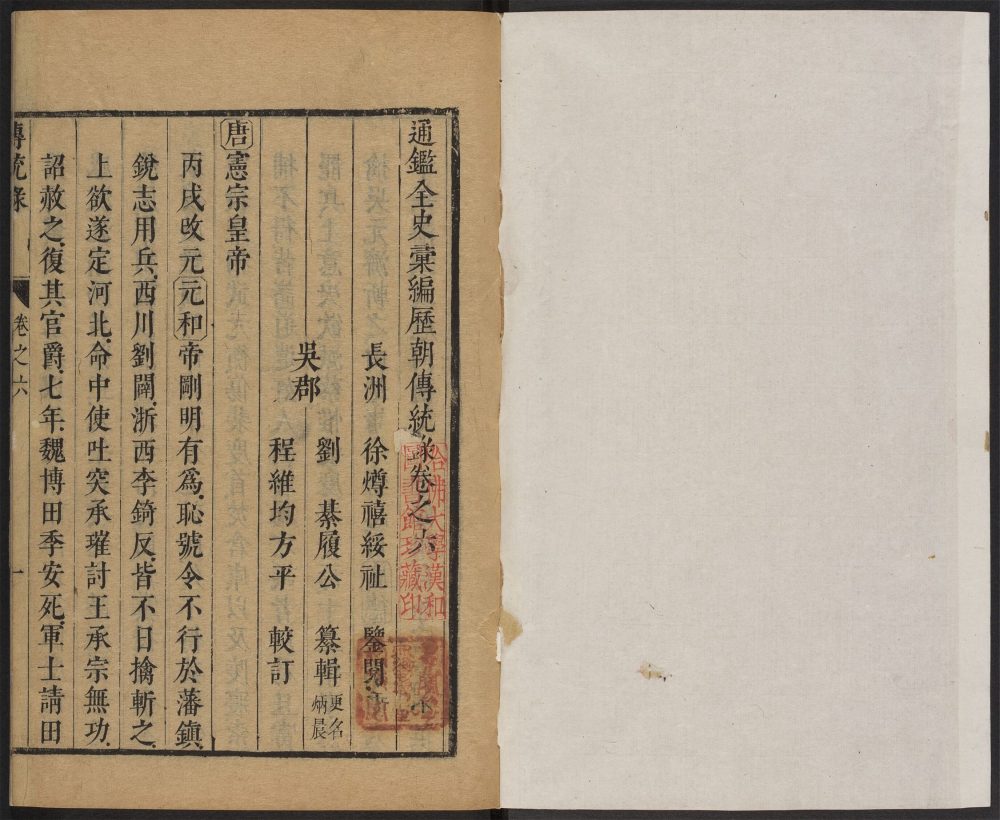 通鑑全史彙編歷朝傳統錄卷之六
長洲徐㷜禧綏祉 鑒閱
吳郡
劉 綦履公 纂輯 更名炳晨
程維均方平 較訂
唐憲宗皇帝
丙戌改元元和帝剛明有為恥號令不行於藩鎮
銳志用兵西川劉闢浙西李錡反皆不日擒斬之
上欲遂定河北命中使吐突承璀討王承宗無功
詔赦之復其官爵七年魏博田季安死軍士請田
傳統錄
卷之六
一
哈佛大學漢和
圖書館珍藏印